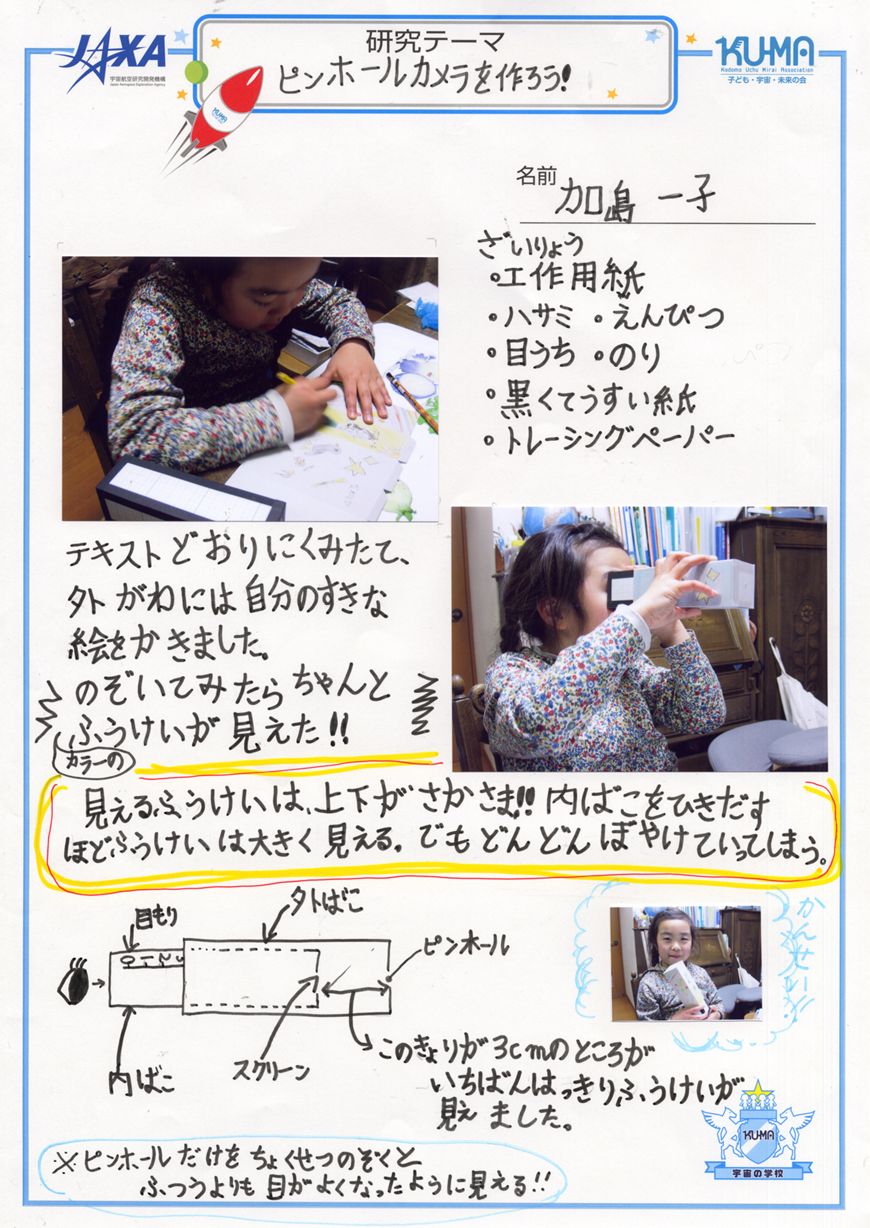 JAXA
宇宙航空研究開発機構
Japan Aerospace Exploration Agency
研究テーマ
ピンホールカメラを作ろう!
KU-MA
Kodomo Uchu Mirai Association
子ども・宇宙・未来の会
KU-MA
名前 加島 一子
ざいりょう
・工作用紙
・ハサミ ・えんぴつ
・目うち ・のり
・黒くてうすい紙
・トレーシングペーパー
テキストどおりにくみたて、
外がわには自分のすきな
絵をかきました。
のぞいてみたらちゃんと
ふうけいが見えた!!
カラーの
見えるふうけいは、上下がさかさま!! 内ばこをひきだす
ほどふうけいは大きく見える。でもどんどんぼやけていってしまう。
目もり
外ばこ
ピンホール
内ばこ
スクリーン
このきょりが3cmのところが
いちばんはっきりふうけいが
見えました。
かんせい!!
※ピンホールだけをちょくせつのぞくと
ふつうよりも目がよくなったように見える!!
KU-MA
宇宙の学校